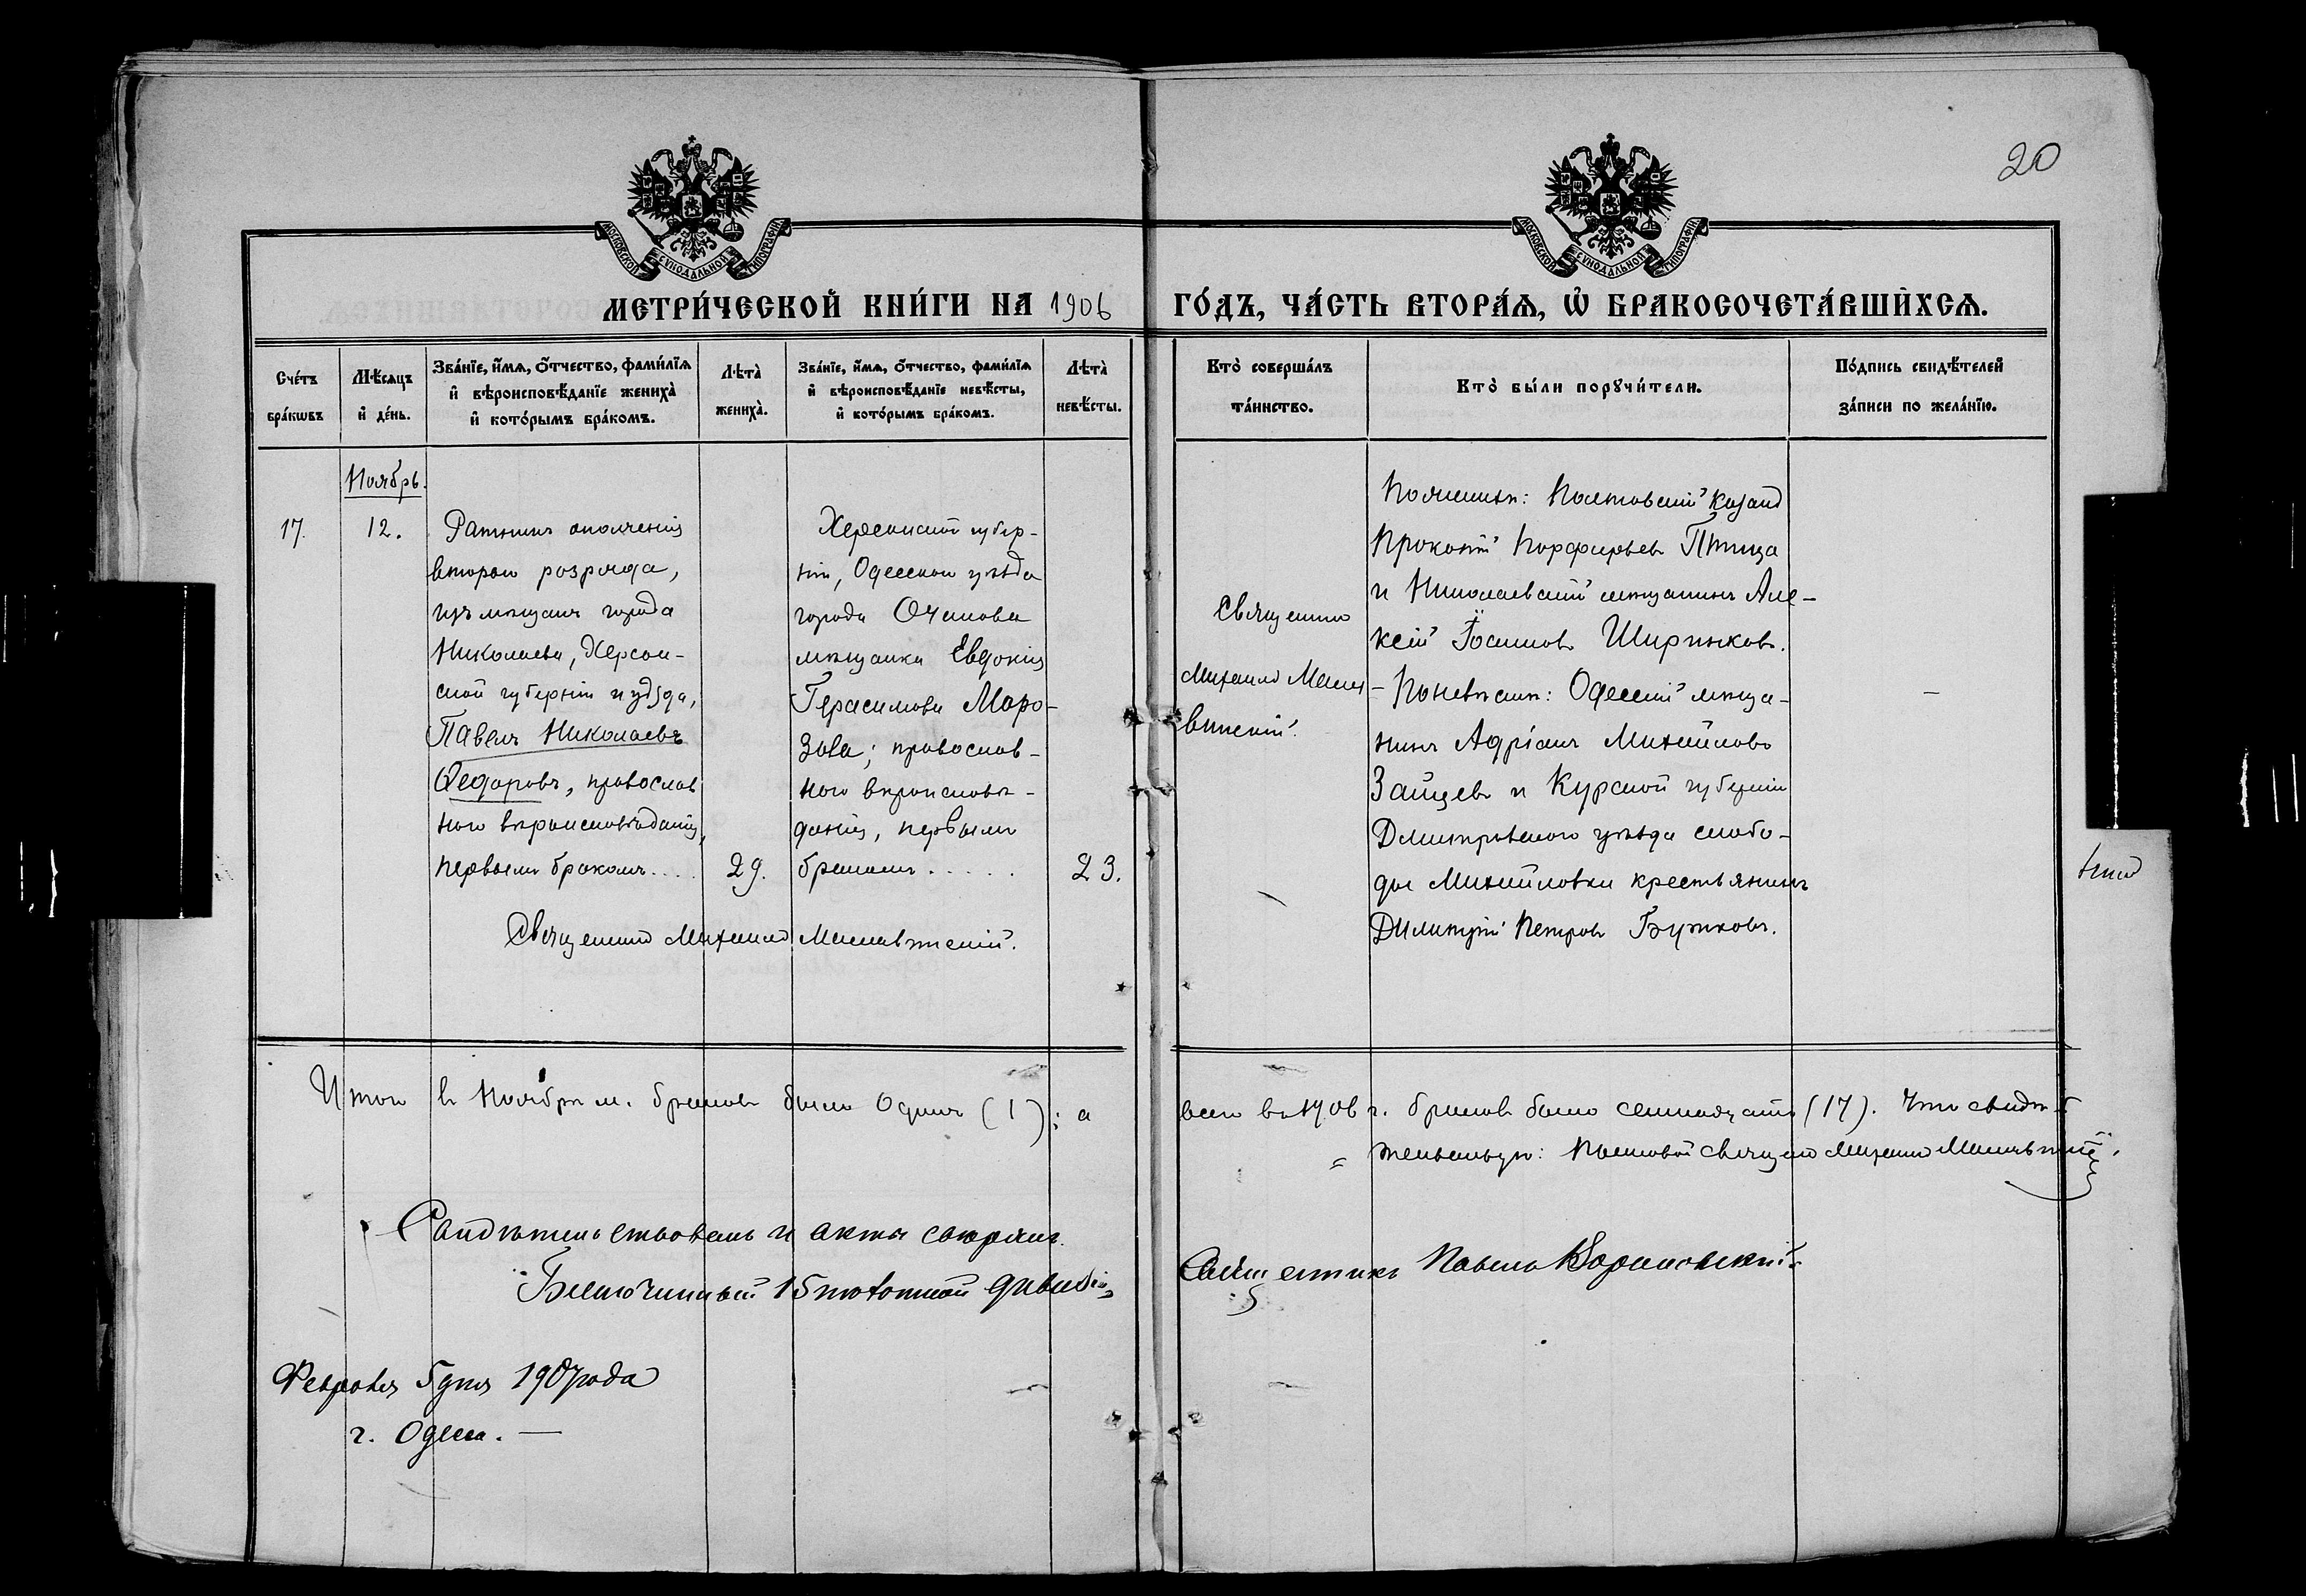 20
МОСКОВСКОЙ СѴНОДАЛЬНОЙ ТИПОГРАФІИ
МОСКОВСКОЙ СѴНОДАЛЬНОЙ ТИПОГРАФІИ
МЕТРИ́ЧЕСКОЙ КНИ́ГИ НА 1906 ГО́ДЪ, ЧА́СТЬ ВТОРА́Ѧ, Ѽ БРАКОСОЧЕТА́ВШИХСѦ.
Сче́тъ
бра́кѡвъ
Мѣ́сѧцъ
и҆ де́нь.
Зва́нїе, и҆́мѧ, ѻ҆́тчество, фами́лїѧ
и҆ вѣроисповѣ́данїе жениха̀
и҆ кото́рымъ бра́комъ.
Лѣта̀
жениха̀.
Зва́нїе, и҆́мѧ, ѻ҆́тчество, фами́лїѧ
и҆ вѣроисповѣ́данїе невѣ́сты,
и҆ кото́рымъ бра́комъ.
Лѣта̀
невѣ́сты.
Кто̀ соверша́лъ
та́инство.
Кто̀ бы́ли порꙋчи́тели.
По́дпись свидѣ́телей
за́писи по жела́нїю.
Ноябрь.
17.
12.
Ратникъ ополченія
второго розряда,
изъ мѣщанъ города
Николаева, Херсон-
ской губерніи и уѣзда,
Павелъ Николаевъ
Ѳедоровъ, православ
наго вѣроисповѣданія,
первымъ бракомъ....
29.
Херсонской губер-
ніи, Одесскаго уѣзда
города Очакова
мѣщанка Евдокія
Герасимова Моро-
зова; православ-
наго вѣроисповѣ-
данія, первымъ
бракомъ......
23.
Священникъ Михаилъ
Священникъ
Михаилъ
По женихѣ: Полтавскій козакъ
Прокопій Порфирьевъ Птица
и Николаевскій мѣщанинъ Але-
ксѣй Іоанновъ Ширяковъ.
По невѣстѣ: Одесскій мѣща-
нинъ Адріанъ Михайловъ
Зайцевъ и Курской губерніи
Дмитріевскаго уѣзда слобо-
ды Михайловки крестьянинъ
Димитрій Петровъ
–
Итого въ Ноябрѣ м. браковъ было одинъ (1); а всего въ 1906 г. браковъ было семнадцать (17). Что свидѣ-
тельствую: Полковой священникъ Михаилъ
Свидѣтельствовалъ и акты сверялъ
Благочинный 15 пѣхотной дивизіи, Священникъ Павелъ
Февраля 5 дня 1907 года
г. Одесса. —